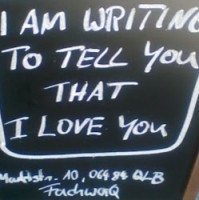 I AM WRITING
TO TELL YOU
THAT
I LOVE YOU
Marktstr. 10, 06484 QLB